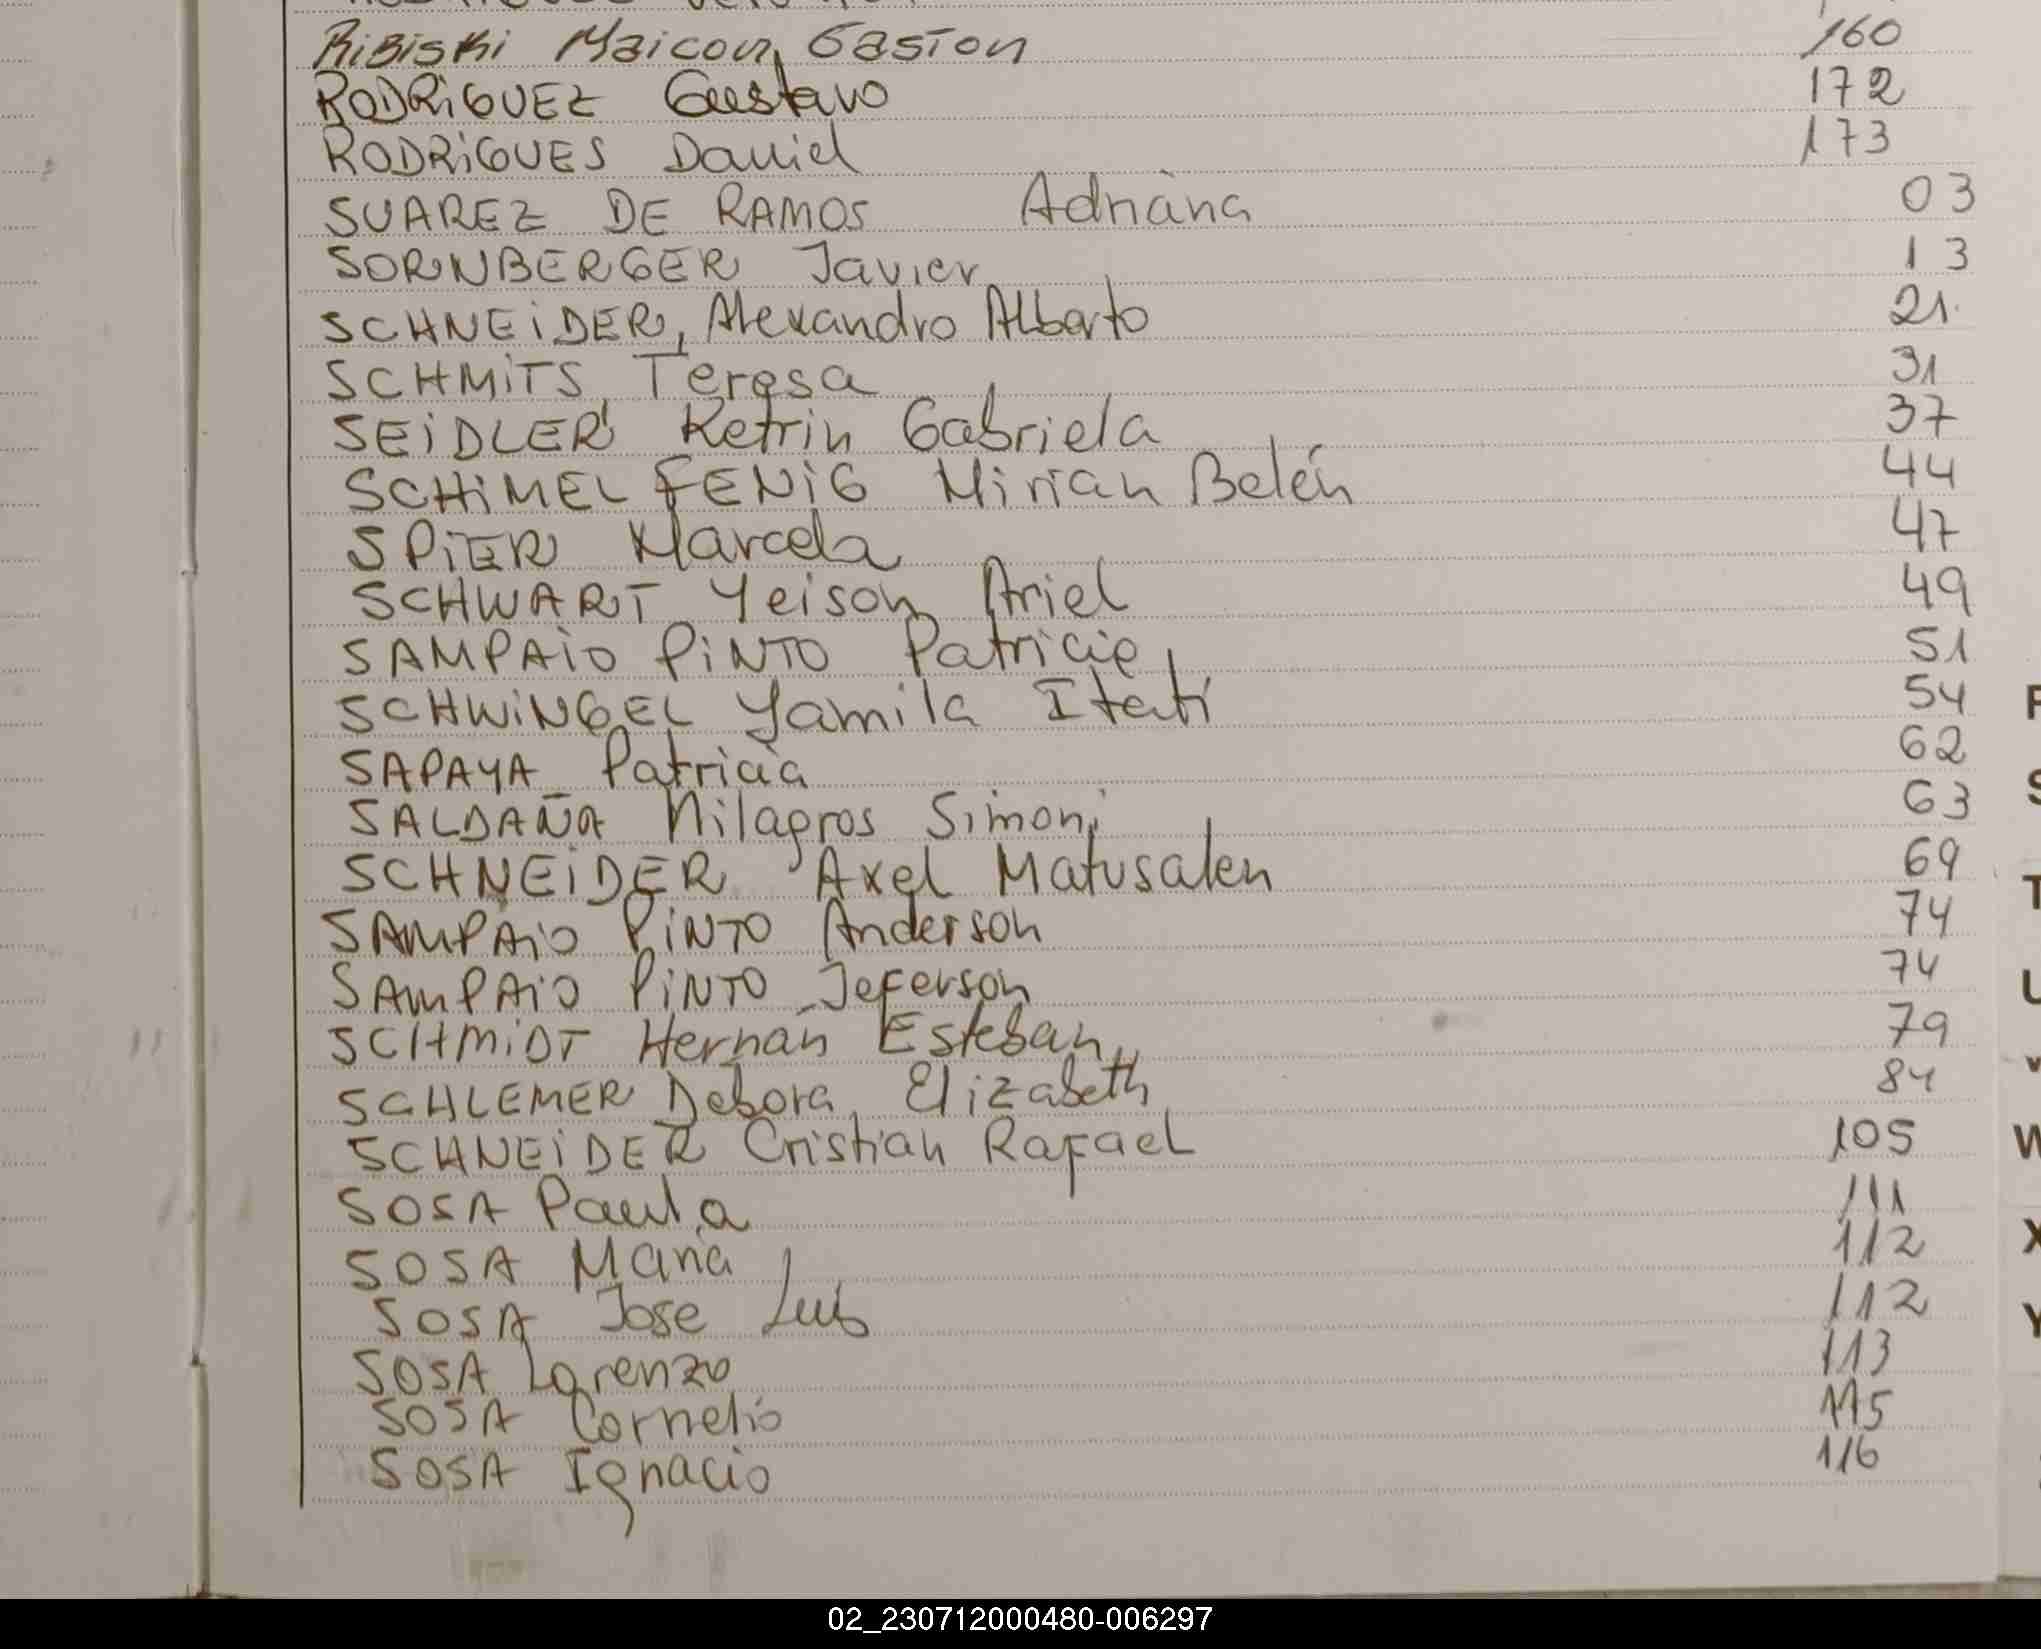 Ribiski Maicon Gaston 160
RODRiGUEZ Gustavo 172
RODRiGUES Daniel 173
SUAREZ DE RAMOS Adriana 03
SORNBERGER Javier 13
SCHNEiDER, Alexandro Alberto 21
SCHMiTS Teresa 31
SEiDLER Ketrin Gabriela 37
SCHiMEL FENiG Mirian Belén 44
SPiER Marcela 47
SCHWART Yeison Ariel 49
SAMPAiO PiNTO Patricia 51
SCHWiNGEL Yamila Itatí 54
SAPAYA Patricia 62
SALDAÑA Milagros Simoni 63
SCHNEiDER Axel Matusalen 69
SAMPAiO PiNTO Anderson 74
SAMPAiO PiNTO Jeferson 74
SCHMiDT Hernán Esteban 79
SCHLEMER Debora Elizabeth 84
SCHNEiDER Cristian Rafael 105
SOSA Paula 111
SOSA Maria 112
SOSA Jose Luis 112
SOSA Lorenzo 113
SOSA Cornelio 115
SOSA Ignacio 116
S
T
U
V
W
X
Y
02_230712000480-006297